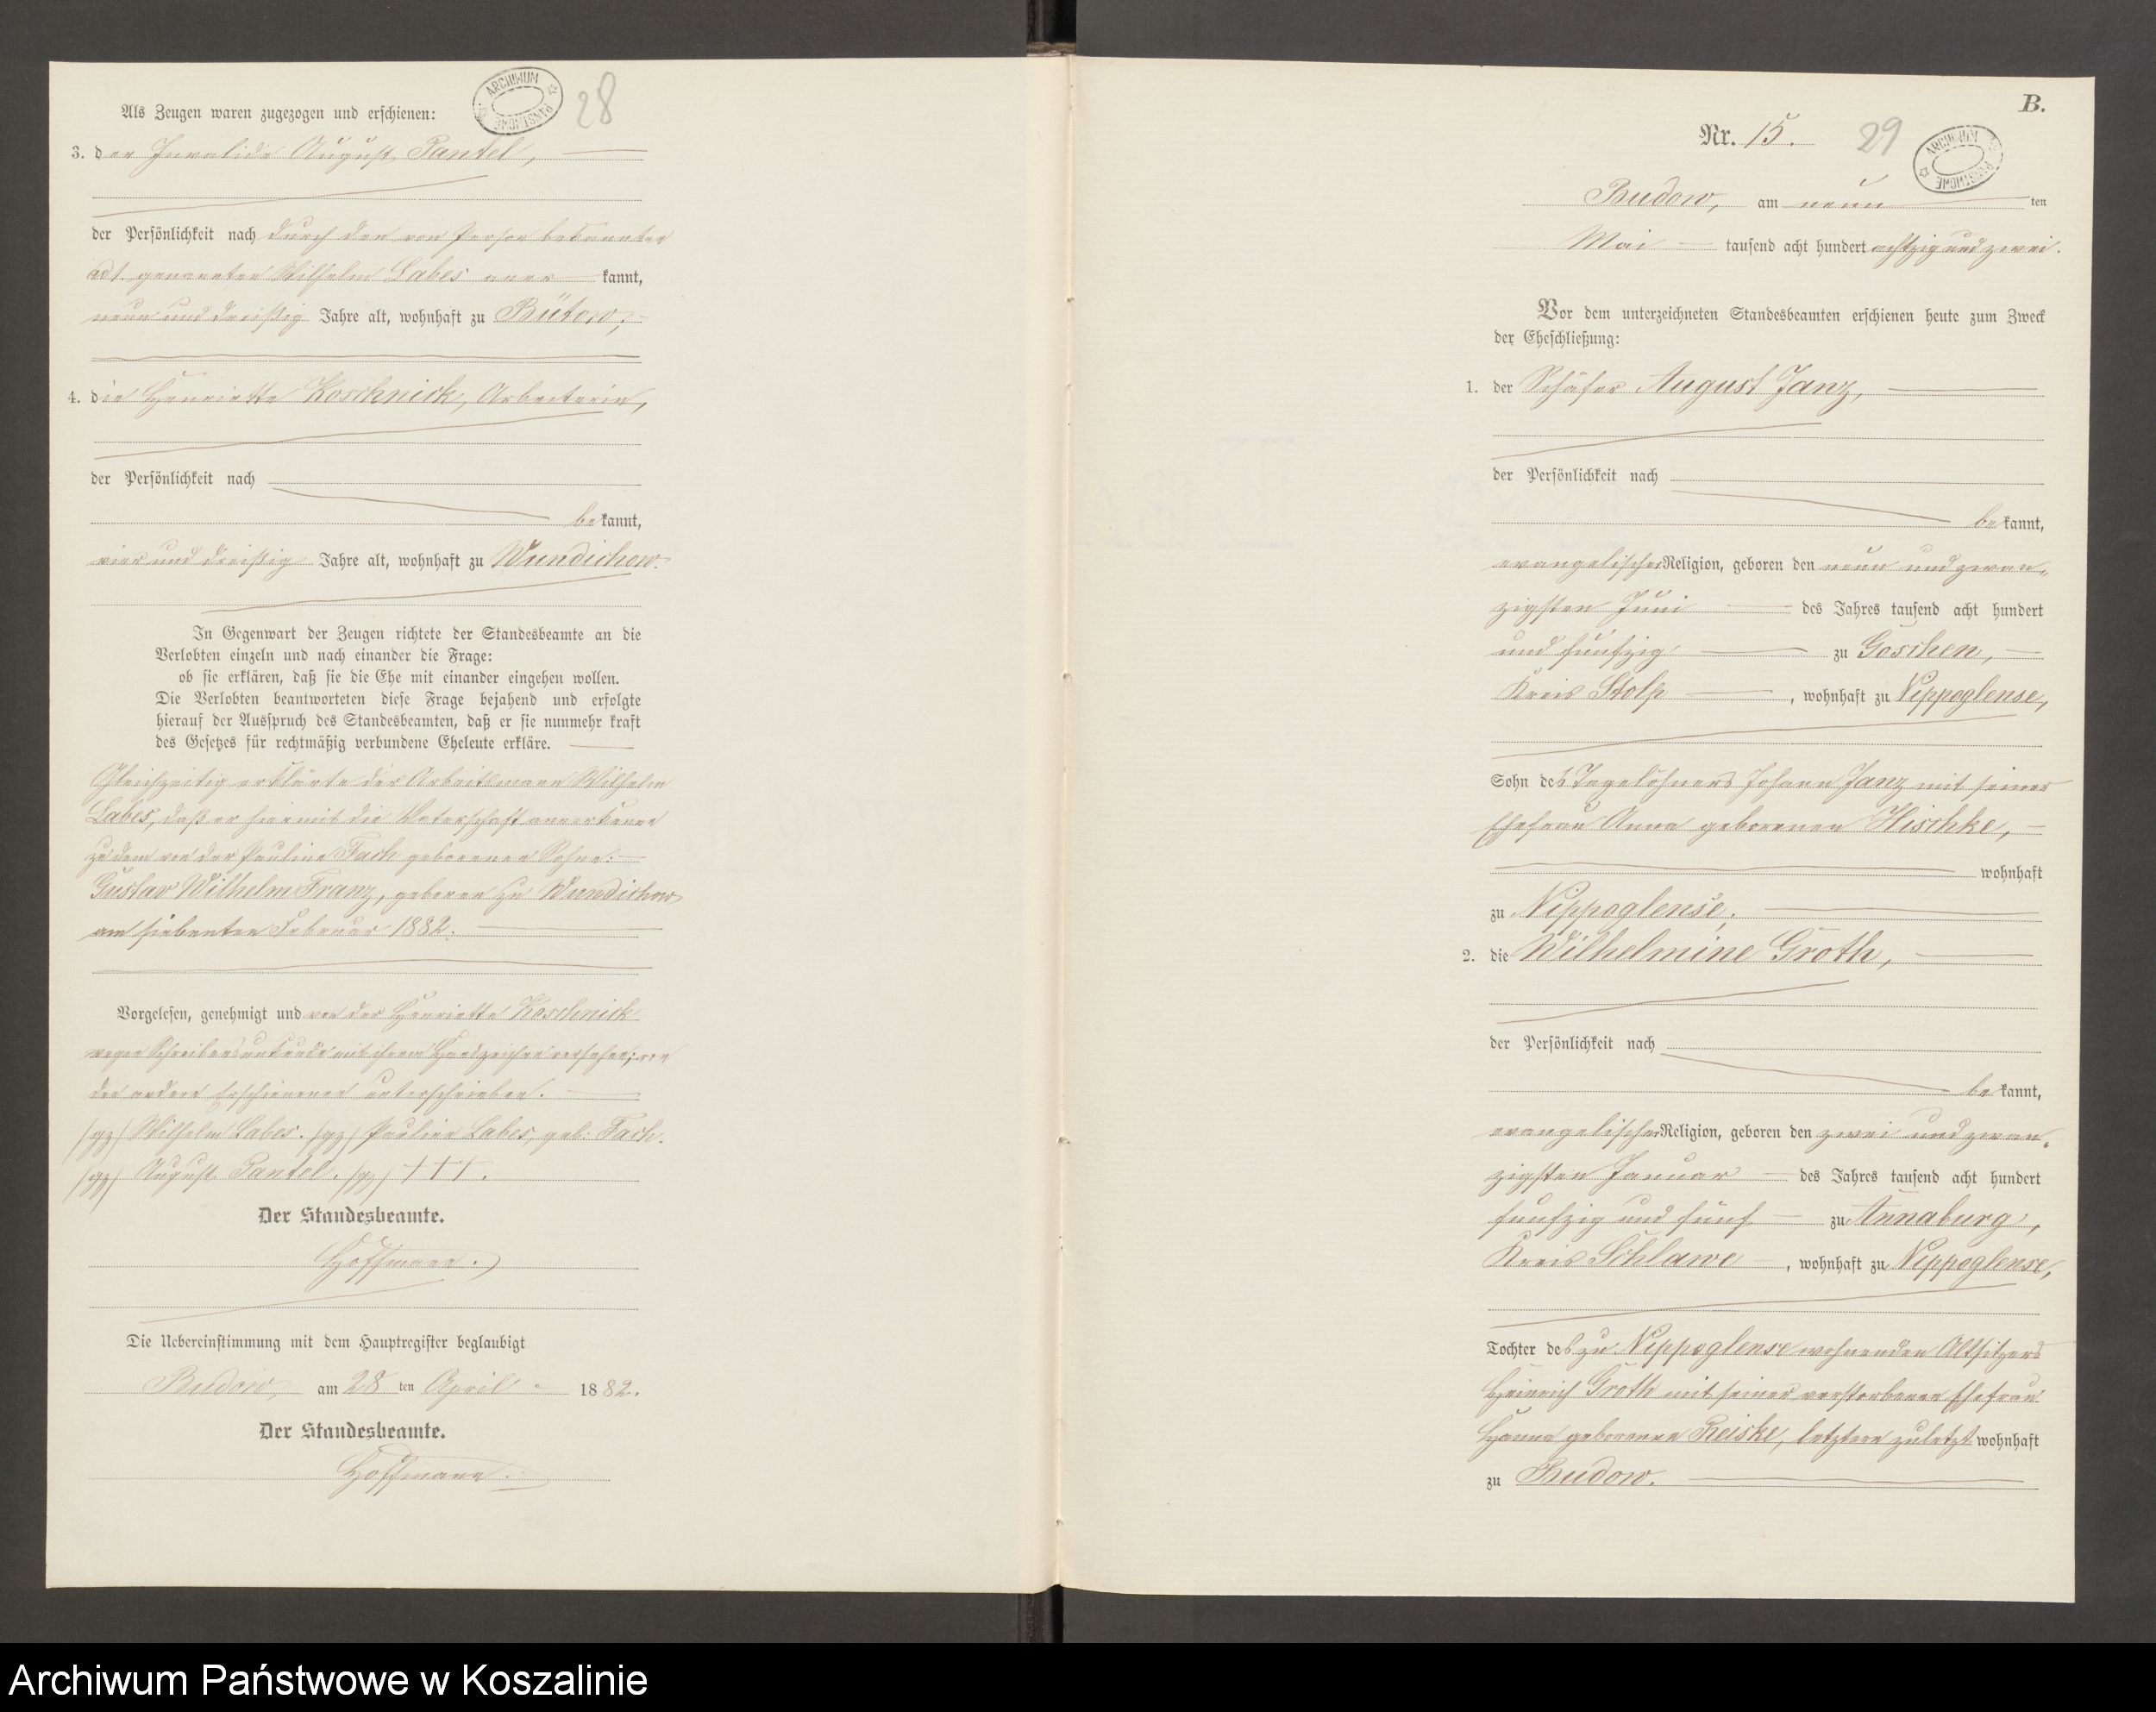 Als Zeugen waren zugezogen und erschienen:
ARCHIWUM PAŃSTWOWE
28
3. der Invalide August Pantel,
der Persönlichkeit nach durch den von Person bekannten
ad 1 genannten Wilhelm Labes aner kannt,
neun und dreißig Jahre alt, wohnhaft zu Bütow;
4. die Henriette Koschnick, Arbeiterin,
der Persönlichkeit nach
be kannt,
vier und dreißig Jahre alt, wohnhaft zu Wundichow.
In Gegenwart der Zeugen richtete der Standesbeamte an die
Verlobten einzeln und nach einander die Frage:
ob sie erklären, daß sie die Ehe mit einander eingehen wollen.
Die Verlobten beantworteten diese Frage bejahend und erfolgte
hierauf der Ausspruch des Standesbeamten, daß er sie nunmehr kraft
des Gesetzes für rechtmäßig verbundene Eheleute erkläre.
Gleichzeitig erklärte der Arbeitsmann Wilhelm
Labes, daß er hiermit die Vaterschaft anerkenne
zu dem von der Pauline Fach geborenen Sohne:
Gustav Wilhelm Franz, geboren zu Wundichow
am siebenten Februar 1882.
Vorgelesen, genehmigt und von der Henriette Koschnick
wegen Schreibensunkunde mit ihrem Handzeichen versehen; von
den andern Erschienenen unterschrieben.
/gz/ Wilhelm Labes. /gz/ Pauline Labes, geb. Fach.
/gz/ August Pantel. /gz/ +++.
Der Standesbeamte.
Hoffmann.
Die Uebereinstimmung mit dem Hauptregister beglaubigt
Budow, am 28 ten April 1882.
Der Standesbeamte.
Hoffmann.
B.
Nr. 15.
29
ARCHIWUM PAŃSTWOWE
Budow, am neun ten
Mai tausend acht hundert achtzig und zwei.
Vor dem unterzeichneten Standesbeamten erschienen heute zum Zweck
der Eheschließung:
1. der Schäfer August Janz,
der Persönlichkeit nach
be kannt,
evangelischer Religion, geboren den neun und zwan-
zigsten Juni des Jahres tausend acht hundert
und fünfzig zu Goschen,
Kreis Stolp, wohnhaft zu Nippoglense,
Sohn des Tagelöhners Johann Janz mit seiner
Ehefrau Anna geborenen Hischke,
wohnhaft
zu Nippoglense;
2. die Wilhelmine Groth,
der Persönlichkeit nach
be kannt,
evangelischer Religion, geboren den zwei und zwan-
zigsten Januar des Jahres tausend acht hundert
fünfzig und fünf zu Annaburg,
Kreis Schlawe, wohnhaft zu Nippoglense,
Tochter des zu Nippoglense wohnenden Altsitzers
Heinrich Groth mit seiner verstorbenen Ehefrau
Hanna geborenen Reiske, letztere zuletzt wohnhaft
zu Budow.
Archiwum Państwowe w Koszalinie